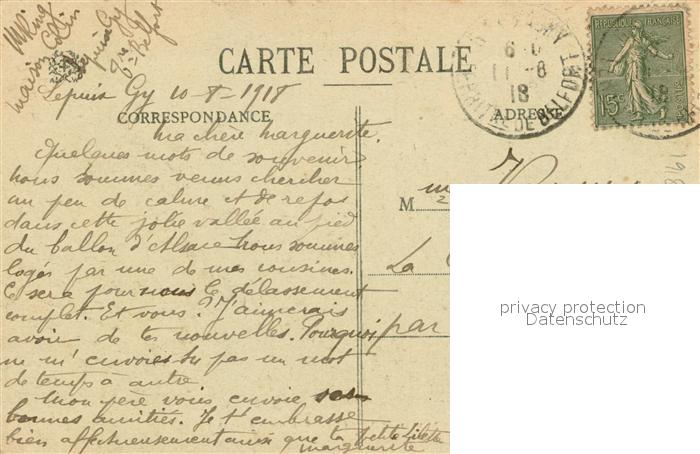 M King
maison Colin
Lepuix Gy
Ter de Belfort
CARTE POSTALE
RÉPUBLIQUE FRANÇAISE
15c
POSTES
6
11 - 8
18
DE BELFORT
Lepuix Gy 10-8-1918
CORRESPONDANCE
ADRESSE
Ma chère Marguerite.
Quelques mots de souvenir
nous sommes venus chercher
un peu de calme et de repos
dans cette jolie vallée au pied
du ballon d'Alsace. Nous sommes
logés par une de mes cousines.
Ce sera pour nous le délassement
complet. Et vous? J'aimerais
avoir de tes nouvelles. Pourquoi
ne m'envoies-tu pas un mot
de temps à autre.
Mon père vous envoie ses
bonnes amitiés. Je t'embrasse
bien affectueusement ainsi que ta petite
Marguerite
M
La
par
privacy protection
Datenschutz